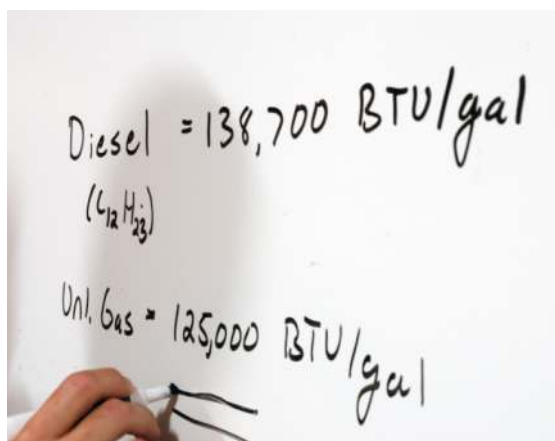 Diesel = 138,700 BTU/gal
(C12H23)
Unl. Gas = 125,000 BTU/gal